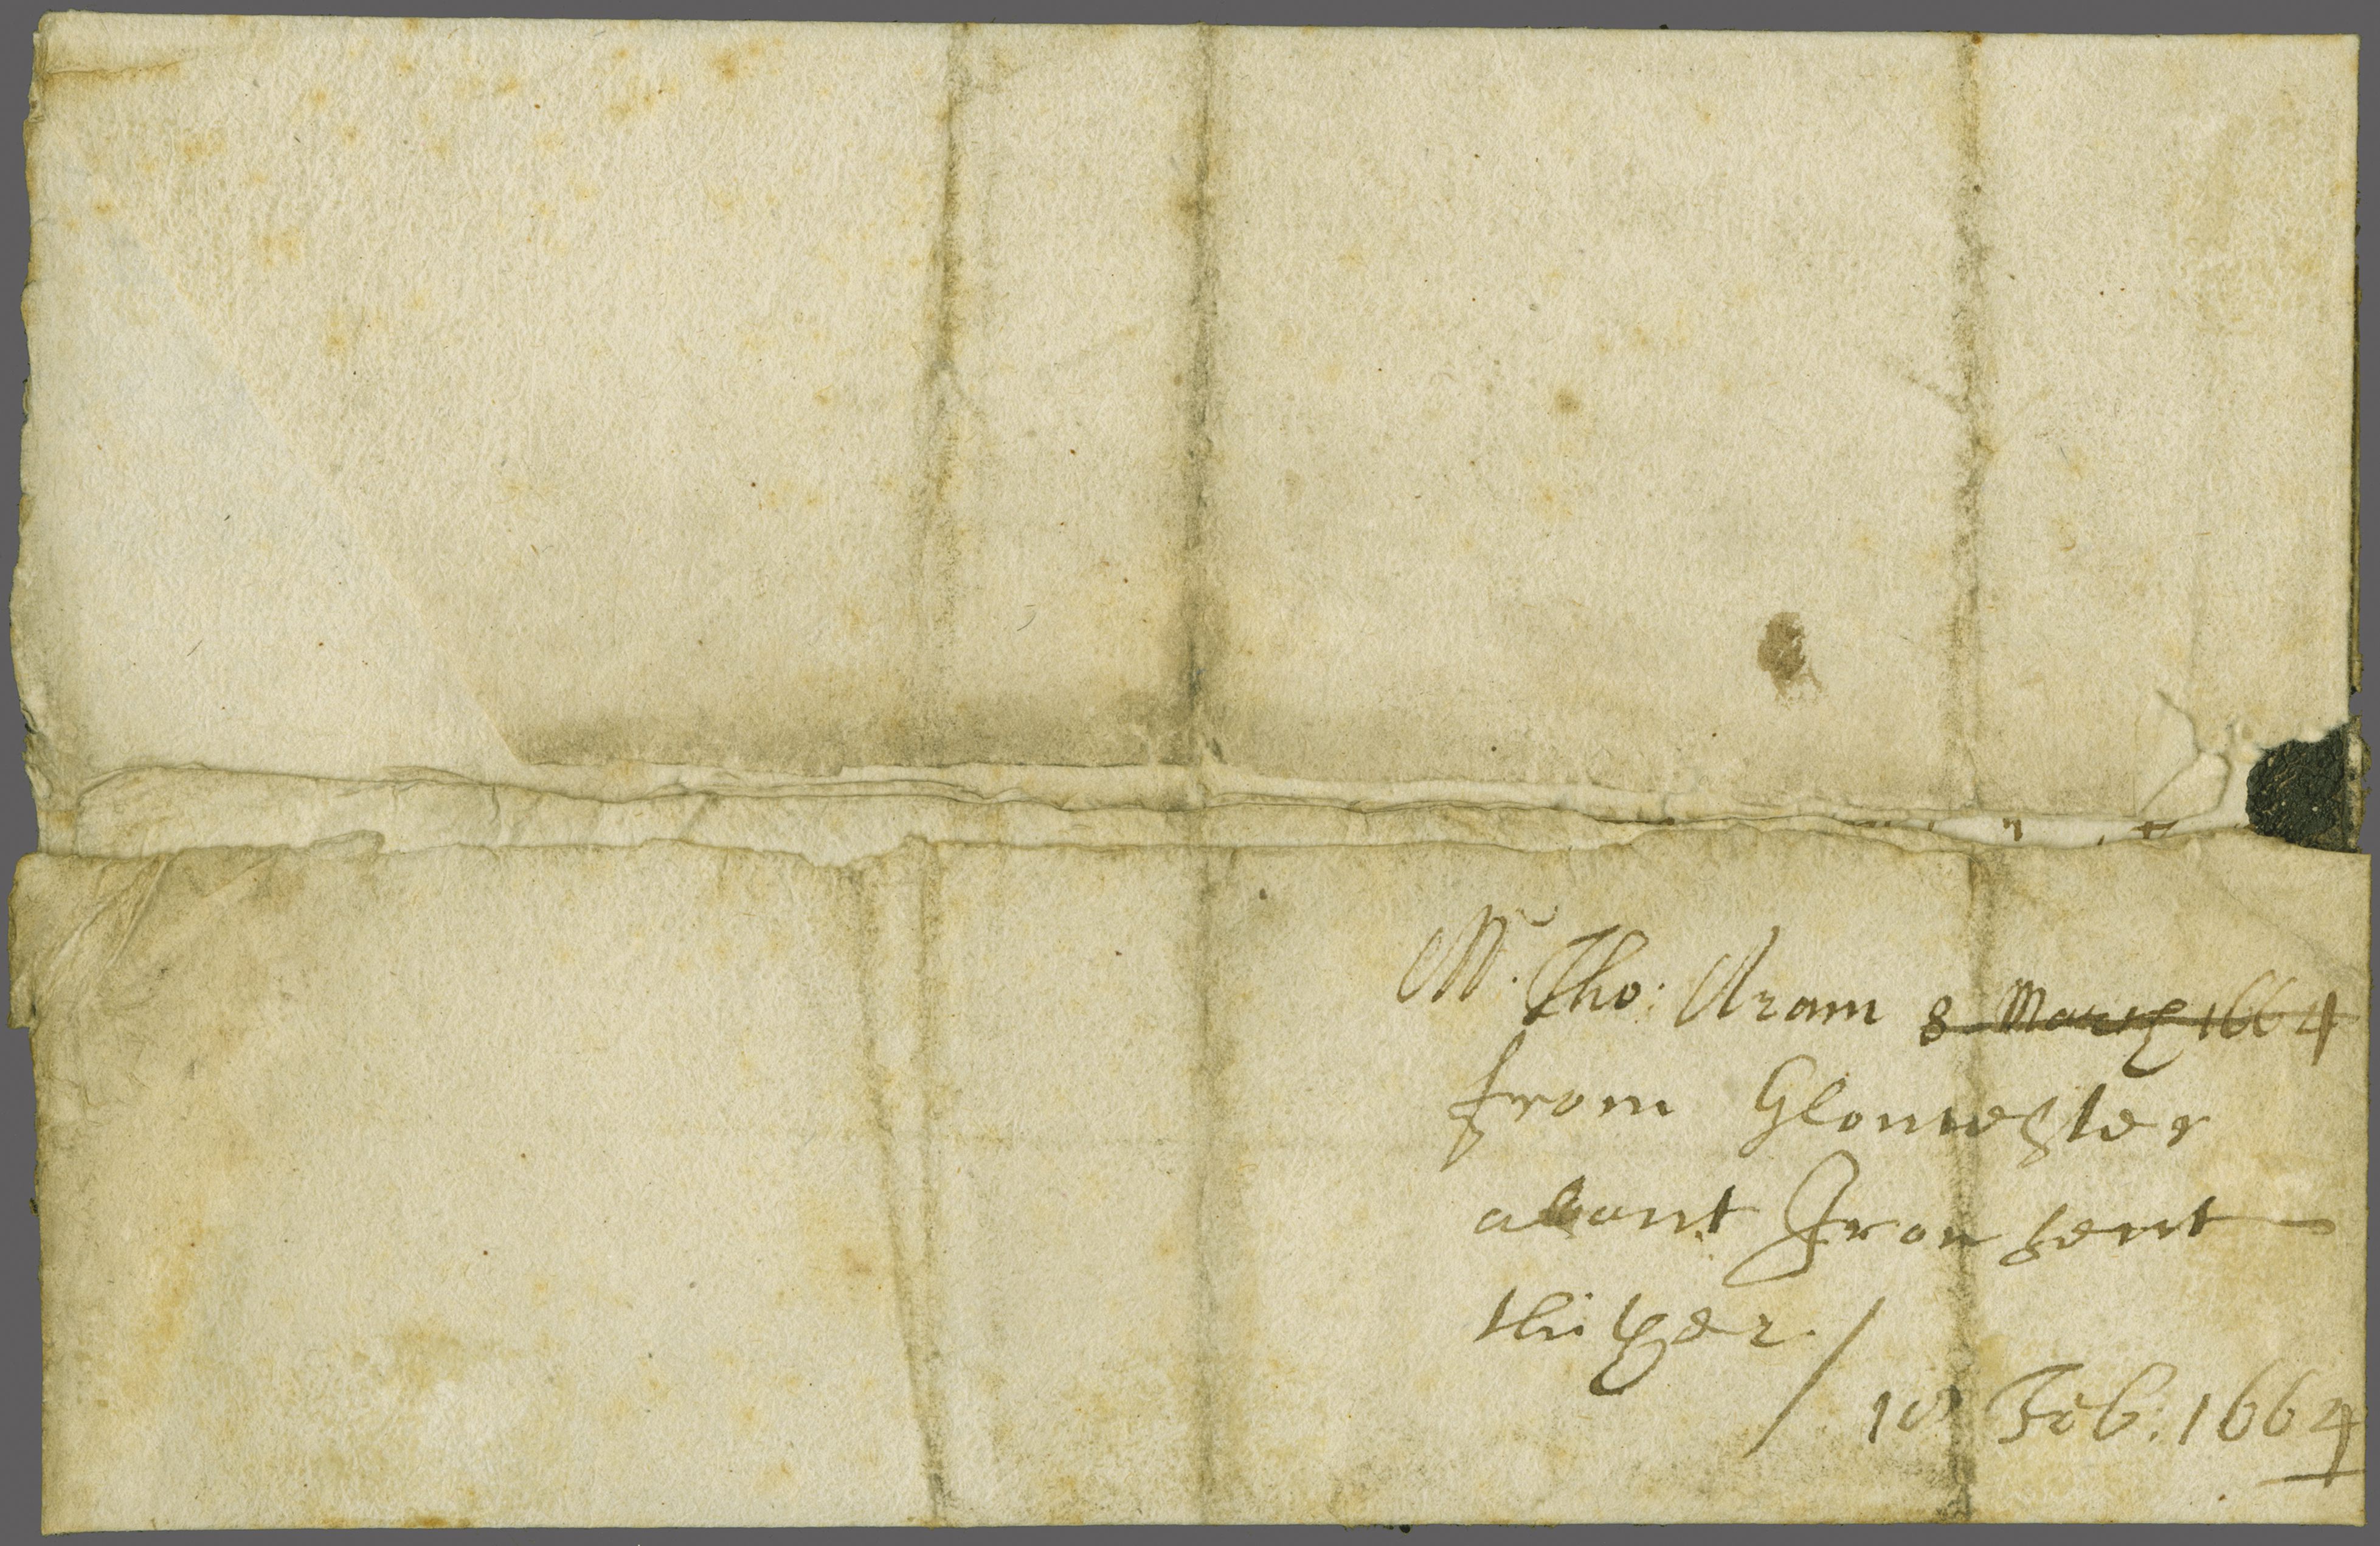 Mr. Tho: Aram 8 March 1664
from Gloucester
about Iron sent
thither /
10 Feb: 1664